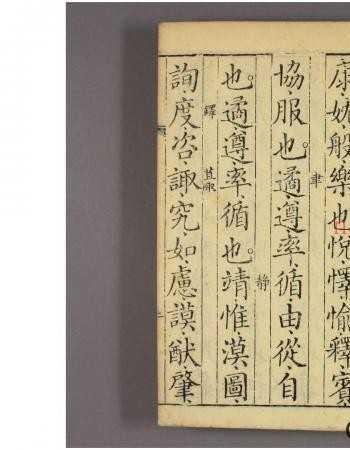 康妉般樂也悅懌愉釋賓
聿
協服也遹遵率循由從自
靜
也遹遵率循也靖惟漠圖
驛
苴陬
詢度咨諏究如慮謨猷肇